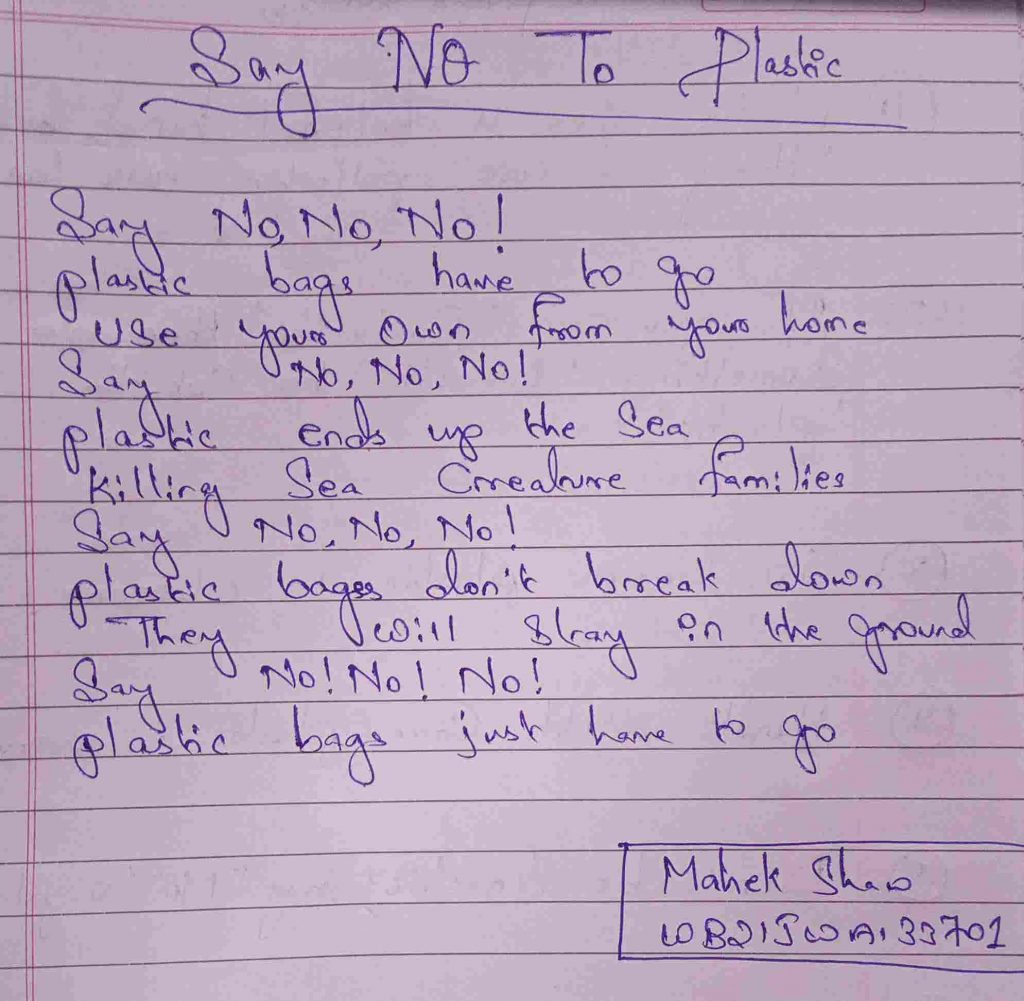 Say No To Plastic
Say No, No, No!
plastic bags have to go
Use your own from your home
Say No, No, No!
plastic ends up the Sea
Killing Sea Creature families
Say No, No, No!
plastic bages don't break down
They will stay in the ground
Say No! No! No!
plastic bags just have to go
Mahek Shaw
WB21SWA133701